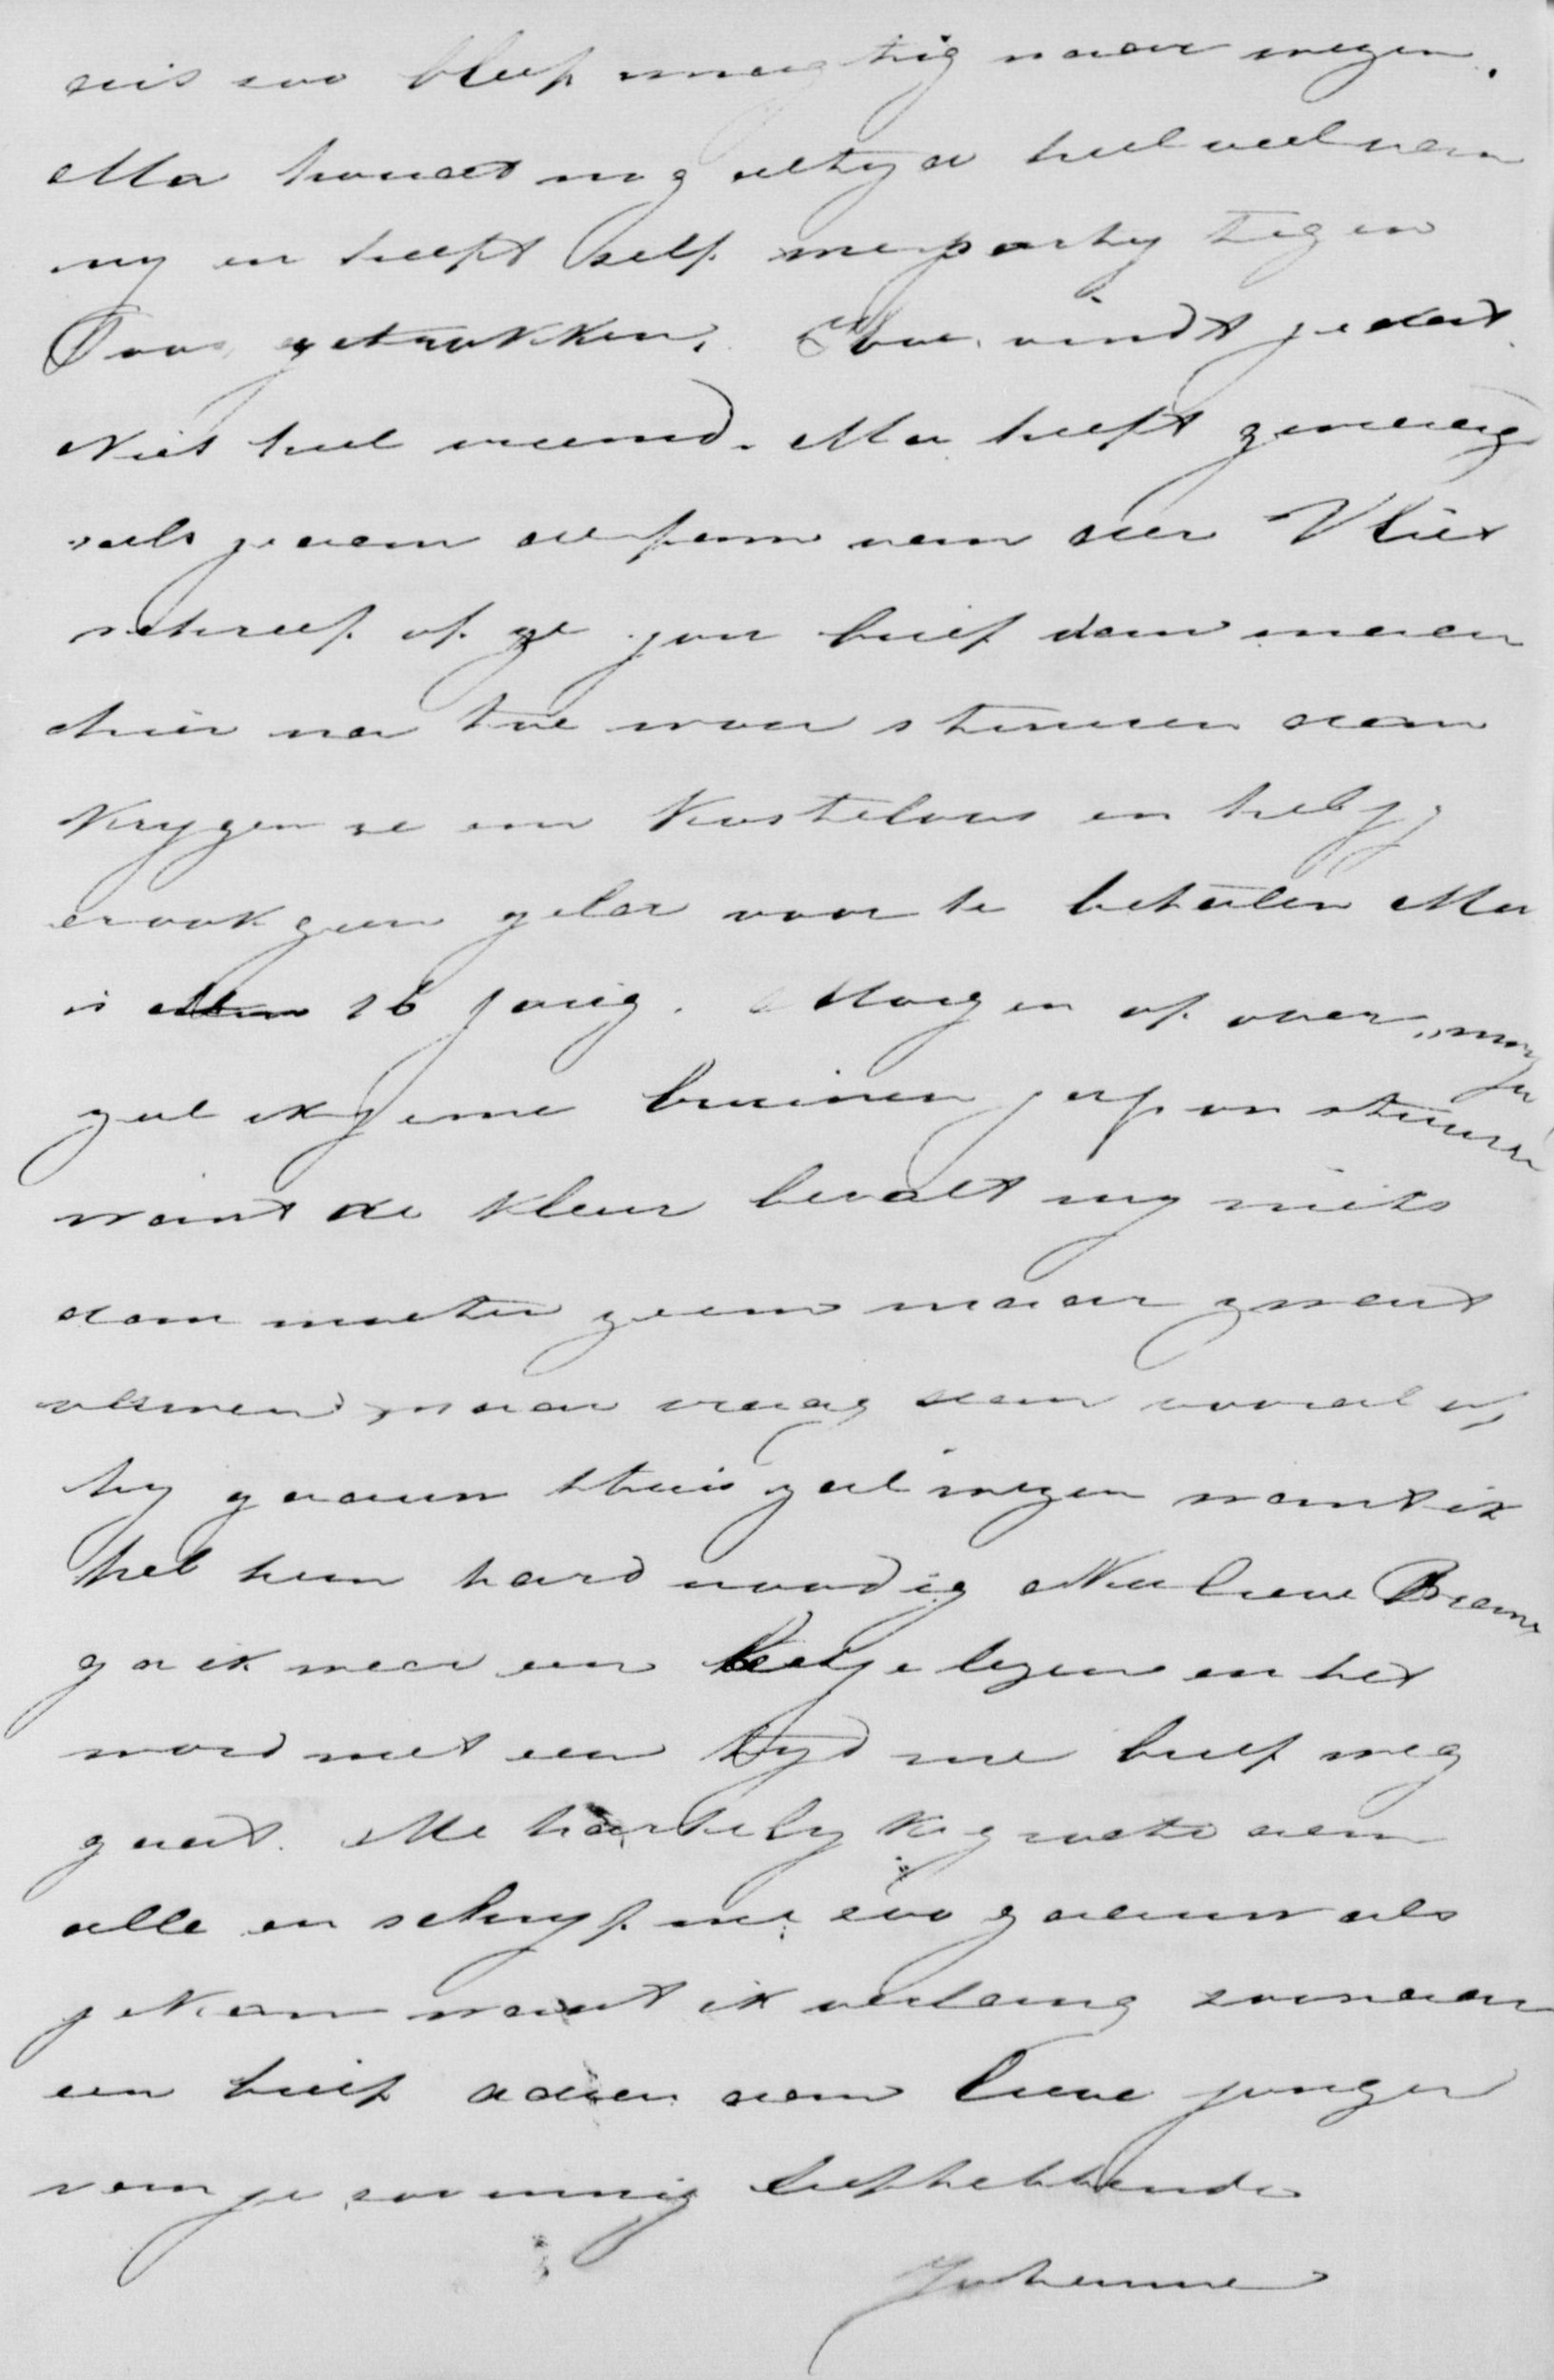 zoo bleef magtig naar wezen.
Ma houdt nog altyd heel veel van
my en heeft self me party tegen
Toos getrokken. Hoe vindt je dat
Niet heel vreemd. Ma heeft gevraag
als je aan de fam van der Vliet
schreef of ze jou brief dan maar
hier na toe wou stuuren dan
krygen ze em kosteloos en heb jy
er ook geen geld voor te betalen Ma
is 16 jarig. Morgen of over morgen
zal ik je me bruinen japon stuuren
want de kleur bevalt my niets
dan moeten ze em maar zwart
verwen maar vraag dan vooral of
hy gaauw thuis zal wezen want ik
heb hem hard noodig Nu lieve Bram
ga ik weer een beetje lezen en het
word met een tyd me brief weg
gaat. Me hartelyke groete aan
alle en schryf me zoo gaauw als
je kan want ik verlang zoo naar
een brief adieu aan lieve jongen
van je zoo innig liefhebbende
Johanna